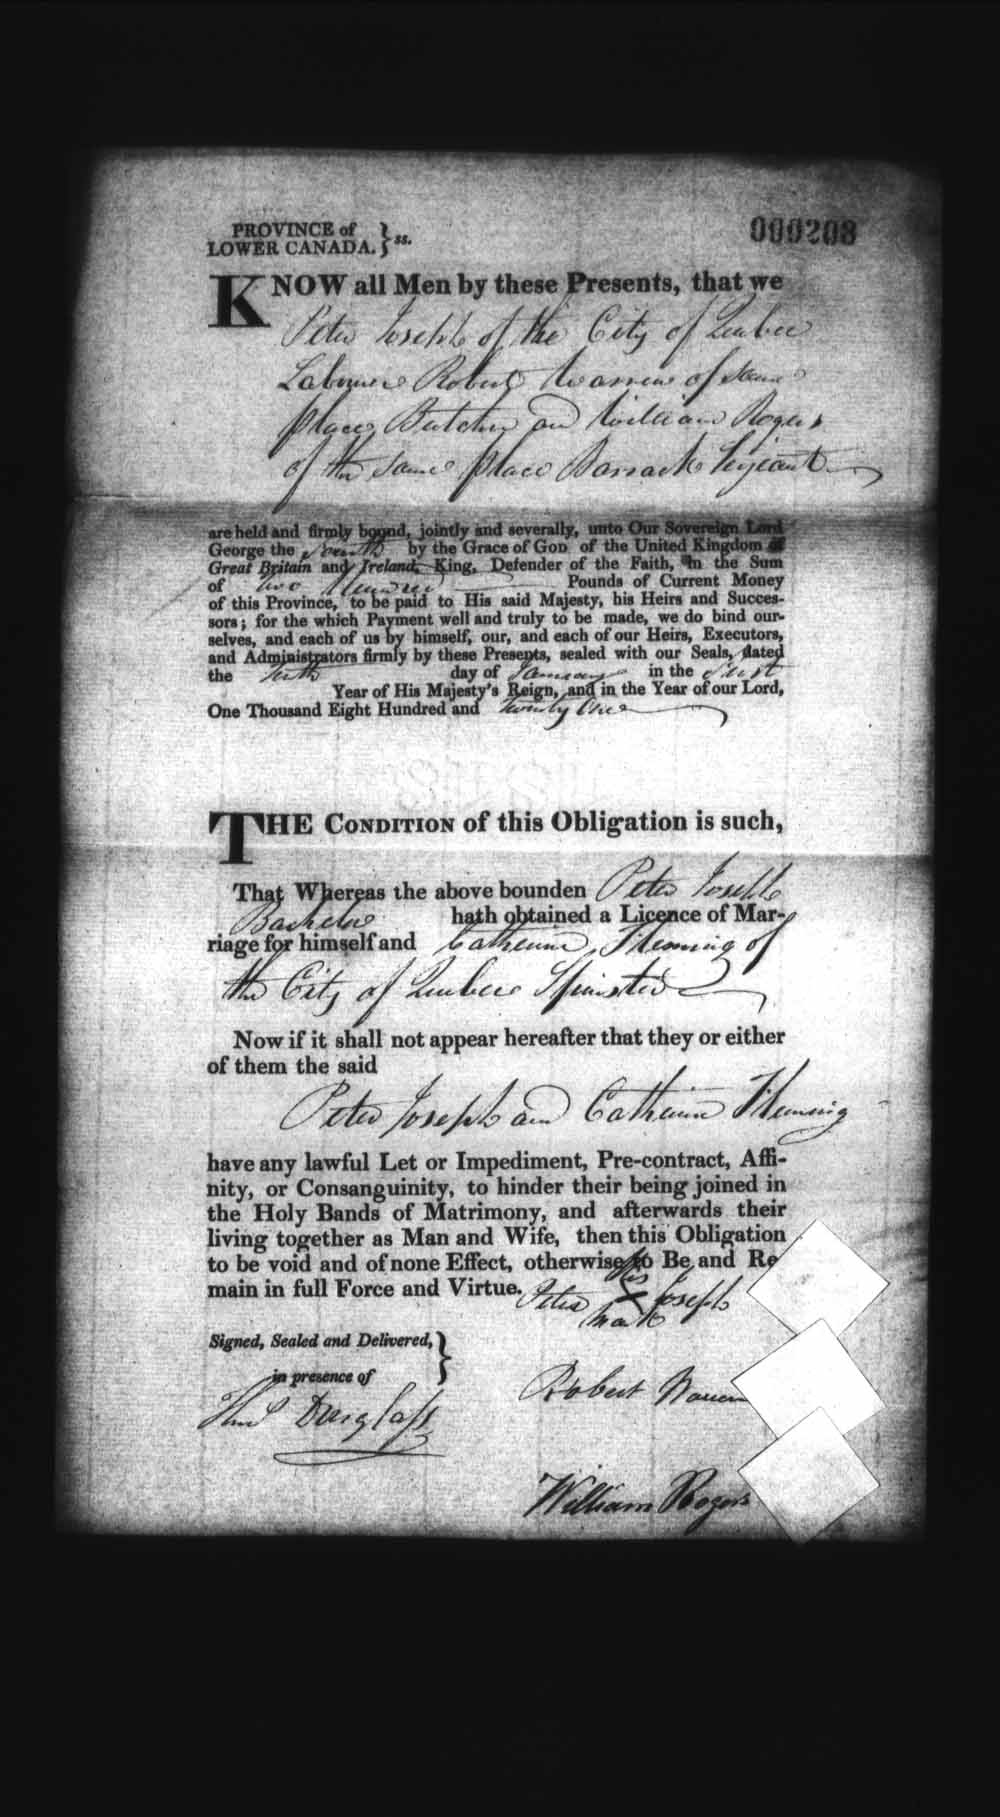 PROVINCE of
LOWER CANADA. } ss.
000208
KNOW all Men by these Presents, that we
Peter Joseph of the City of Quebec
Labourer Robert Warren of same
place Butcher and William Rogers
of the same place Barrack Serjeant
are held and firmly bound, jointly and severally, unto Our Sovereign Lord
George the Fourth by the Grace of God of the United Kingdom of
Great Britain and Ireland, King, Defender of the Faith, in the Sum
of two Hundred Pounds of Current Money
of this Province, to be paid to His said Majesty, his Heirs and Succes-
sors; for the which Payment well and truly to be made, we do bind our-
selves, and each of us by himself, our, and each of our Heirs, Executors,
and Administrators firmly by these Presents, sealed with our Seals, dated
the day of January in the First
Year of His Majesty's Reign, and in the Year of our Lord,
One Thousand Eight Hundred and Twenty One
THE CONDITION of this Obligation is such,
That Whereas the above bounden Peter Joseph
Bachelor hath obtained a Licence of Mar-
riage for himself and Catherine Flemming of
the City of Quebec Spinster
Now if it shall not appear hereafter that they or either
of them the said
Peter Joseph and Catherine Flemming
have any lawful Let or Impediment, Pre-contract, Affi-
nity, or Consanguinity, to hinder their being joined in
the Holy Bands of Matrimony, and afterwards their
living together as Man and Wife, then this Obligation
to be void and of none Effect, otherwise to Be and Re
main in full Force and Virtue.
his
Peter X Joseph
mark
Signed, Sealed and Delivered, }
in presence of
Robert Warren
Douglass
William Rogers